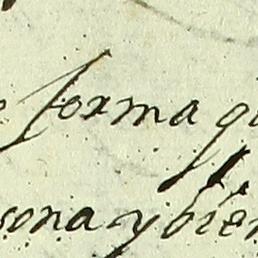 forma q
sona y bien